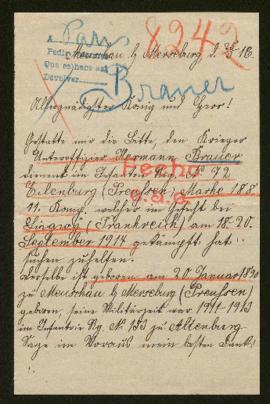 A Paris
Pedir
Que rehace
Devolver
8242
Meuschau b/ Merseburg d.
Brauer
Allergnädigster König und Herr!
Gestatte mir die Bitte, den Krieger
Unteroffizier Hermann Brauer
dienend im Infanterie Reg. No 72
Hecho
Eilenburg (Preussen), Marke 188
11. Komp. welcher im Gefecht bei
9.a.g
(Frankreich) am 18-20.
September 1914 gekämpft hat
suchen zu helfen.
Derselbe ist geboren am 20 Januar 1890
zu Meuschau b/ Merseburg (Preussen)
geboren, seine Militärzeit war 1911-1913
im Infantrie Rg. No 153 zu Altenburg
Sage im Voraus mein besten Dank!